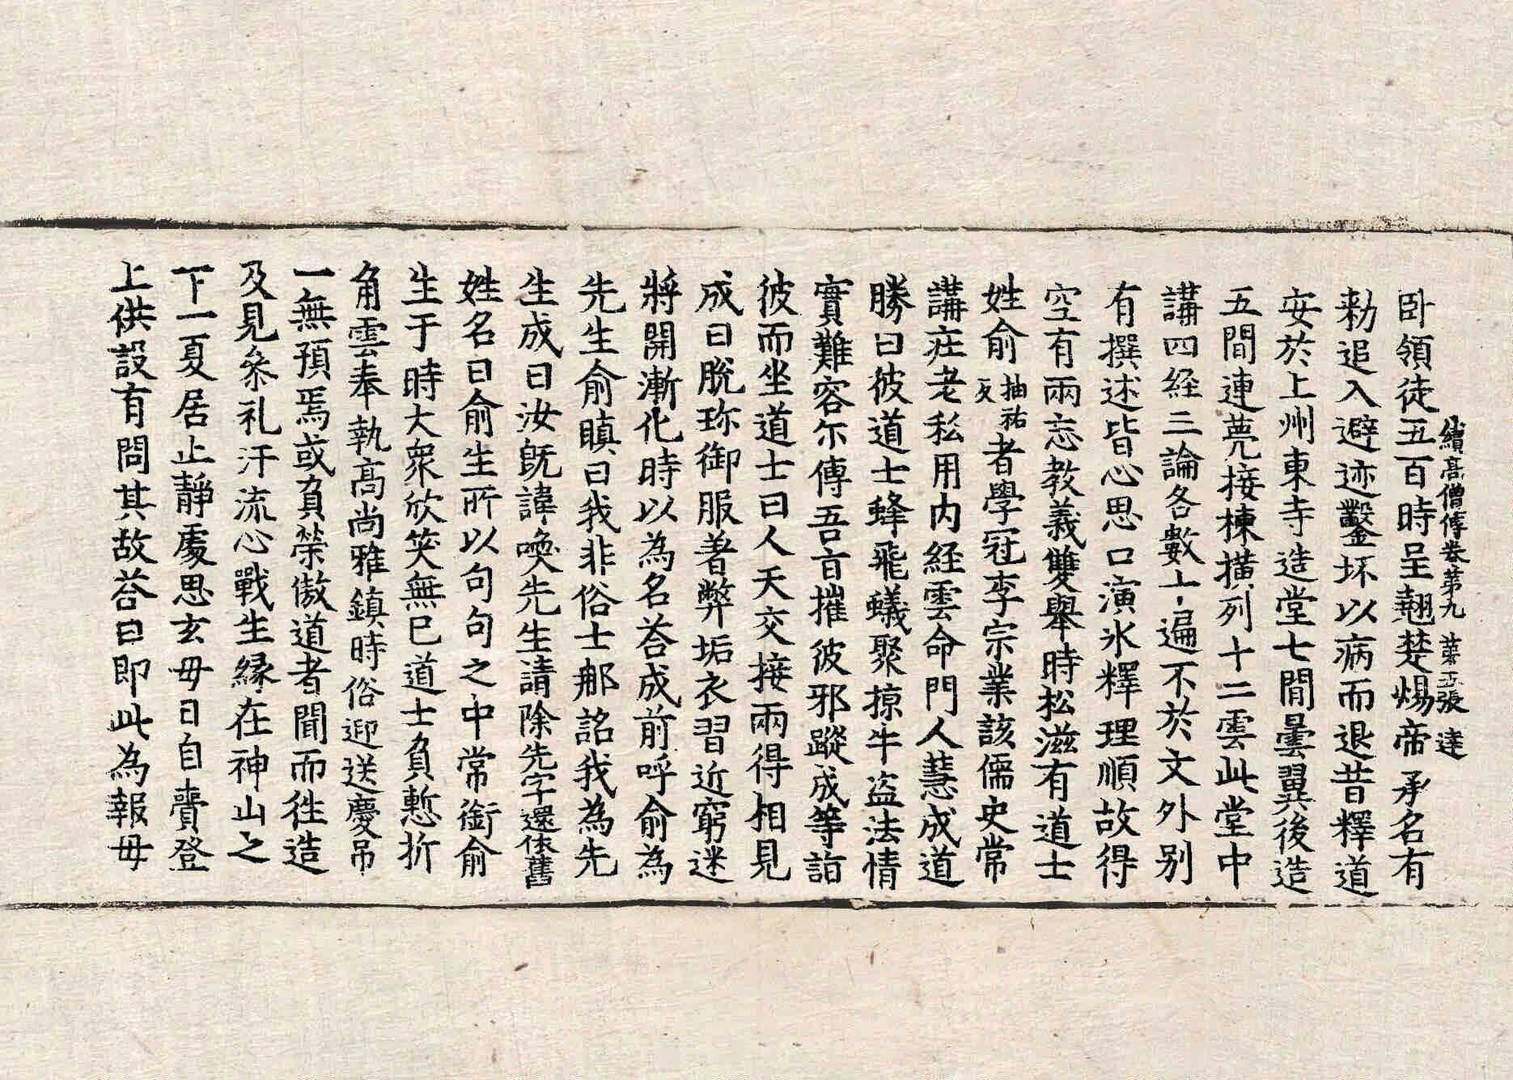 續高僧傳卷第九　第五張　達
卧領徒五百時呈翹楚煬帝承名有
勑追入避迹鑿坏以病而退昔釋道
安於上州東寺造堂七間曇翼後造
五間連甍接棟橫列十二雲此堂中
講四経三論各數十遍不於文外別
有撰述皆心思口演氷釋理順故得
空有兩忘教義雙舉時松滋有道士
姓俞抽祐反者學冠李宗業該儒史常
講莊老私用内経雲命門人慧成道
勝曰彼道士蜂飛蟻聚掠牛盜法情
實難容尒傳吾言摧彼邪蹤成等詣
彼而坐道士曰人天交接兩得相見
成曰脫珎御服著弊垢衣習近窮迷
將開漸化時以為名荅成前呼俞為
先生俞瞋曰我非俗士那詺我為先
生成曰汝旣諱喚先生請除先字還依舊
姓名曰俞生所以句句之中常銜俞
生于時大衆欣笑無已道士負慙折
角雲奉執高尚雅鎮時俗迎送慶吊
一無預焉或負榮傲道者聞而徃造
及見叅礼汗流心戰生縁在神山之
下一夏居止靜處思玄毋日自賫登
上供設有問其故荅曰即此為報毋